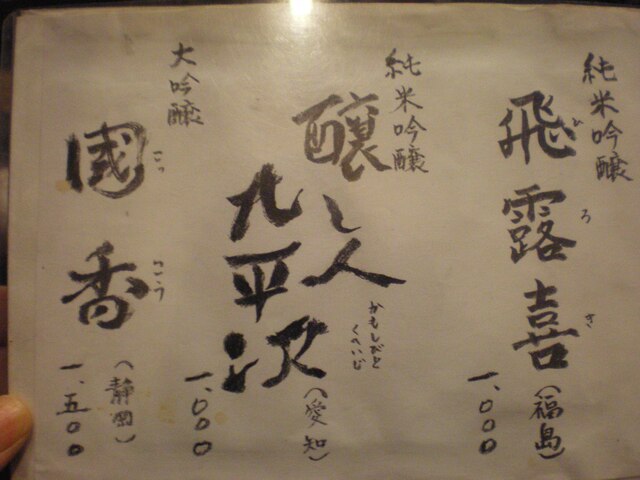 純米吟醸
飛露喜
ひろき
（福島）
一、〇〇〇
純米吟醸
醸し人
九平次
かもしびと
くへいじ
（愛知）
一、〇〇〇
大吟醸
國香
こっこう
（静岡）
一、五〇〇